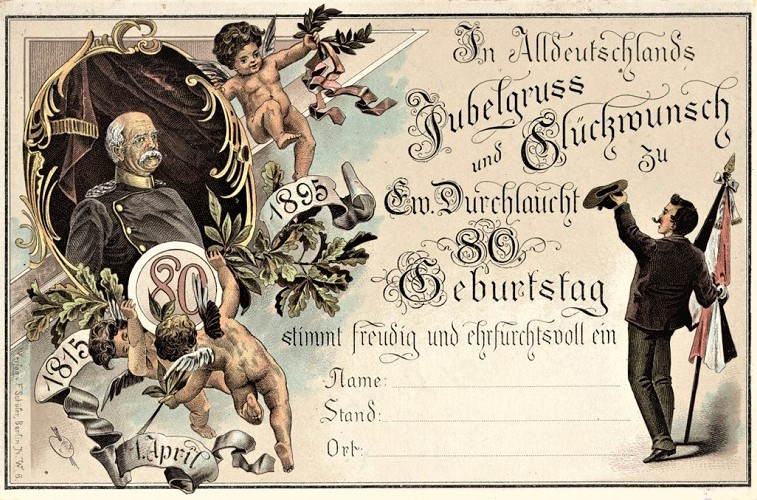 In Alldeutschlands
Jubelgruss
und Glückwunsch
zu
Ew. Durchlaucht
80
Geburtstag
stimmt freudig und ehrfurchtsvoll ein
Name:
Stand:
Ort:
1895
80
1815
1. April
Verlag v. F. Schüler, Berlin N. W. 6.